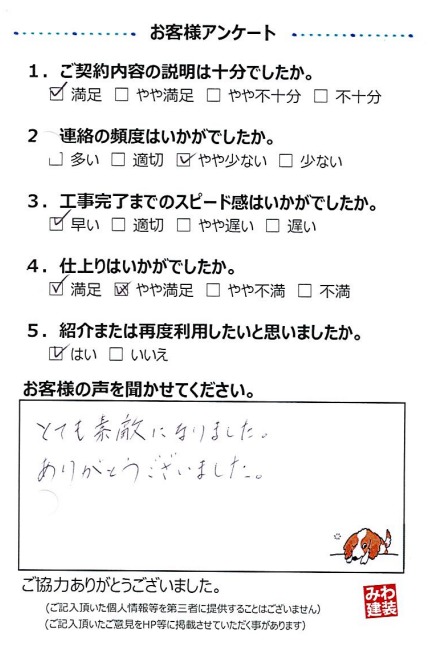 お客様アンケート
1. ご契約内容の説明は十分でしたか。
☑ 満足 □ やや満足 □ やや不十分 □ 不十分
2 連絡の頻度はいかがでしたか。
□ 多い □ 適切 ☑ やや少ない □ 少ない
3. 工事完了までのスピード感はいかがでしたか。
☑ 早い □ 適切 □ やや遅い □ 遅い
4. 仕上りはいかがでしたか。
☑ 満足 ☒ やや満足 □ やや不満 □ 不満
5. 紹介または再度利用したいと思いましたか。
☑ はい □ いいえ
お客様の声を聞かせてください。
とても素敵になりました。
ありがとうございました。
ご協力ありがとうございました。
(ご記入頂いた個人情報等を第三者に提供することはございません)
(ご記入頂いたご意見をHP等に掲載させていただく事があります)
みわ
建装